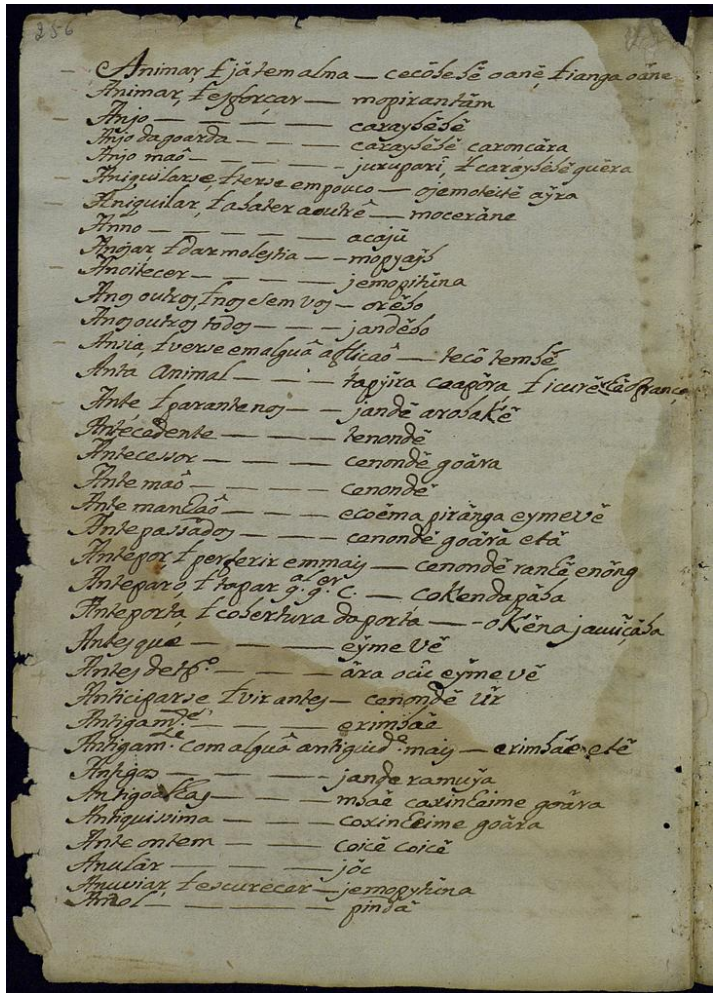 256
Animar, ł já tem alma — cecôbebê oanê, ł ianga oãne
Animar, ł esforçar — mopirantãm
Anjo — — — — — caraybêbê
Anjo da goarda — — — — caraybêbê caroncâra
Anjo maô — — — — — jurupari, ł caraybêbê guêra
Aniquilarse, ł terse em pouco — ojemoteitê aŷra
Aniquilar, ł abater a outrê — mocerâne
Anno — — — — — acajũ
Anojar, ł dar molestia — — mopyaŷb
Anoitecer — — — — jemopitũna
A nos outros, ł nos e sem vos — orêbo
A nos outros todos — — — jandêbo
Ansia, ł verse em alguã aflicaô — tecô tembê
Anta Animal — — — tapijra caapôra, ł icurê
Ante ł parante nos — — jandê arobakê
Antecedente — — — — tenondê
Antecessor — — — — cenondê goâra
Ante maô — — — — cenondê
Ante manhaô — — — — ecoêma pirânga eymevê
Antepassâdos — — — — cenondê goâra etâ
Antepor ł perferir em mais — cenondê ranhê enông
Anteparo, ł tapar q. q. C. — cokendapâba
Anteporta, ł cobertura da porta — okêna jauiçâba
Antes que — — — — eŷme vê
Antes de tp.º — — — — âra ocic eŷme vê
Anticiparse ł vir antes — cenondê ûr
Antigam.te — — — — erimbaê
Antigam.te com alguã antiguid.e mais — erimbãe etê
Antigos — — — — jande ramuŷa
Antigoalhas — — — mbaê coxinheime goâra
Antiquissima — — — coxinheime goâra
Ante ontem — — — coicê coicê
Anular — — — — jôc
Anuviar, ł escurecer — jemopytũna
Anzol — — — — — pindâ